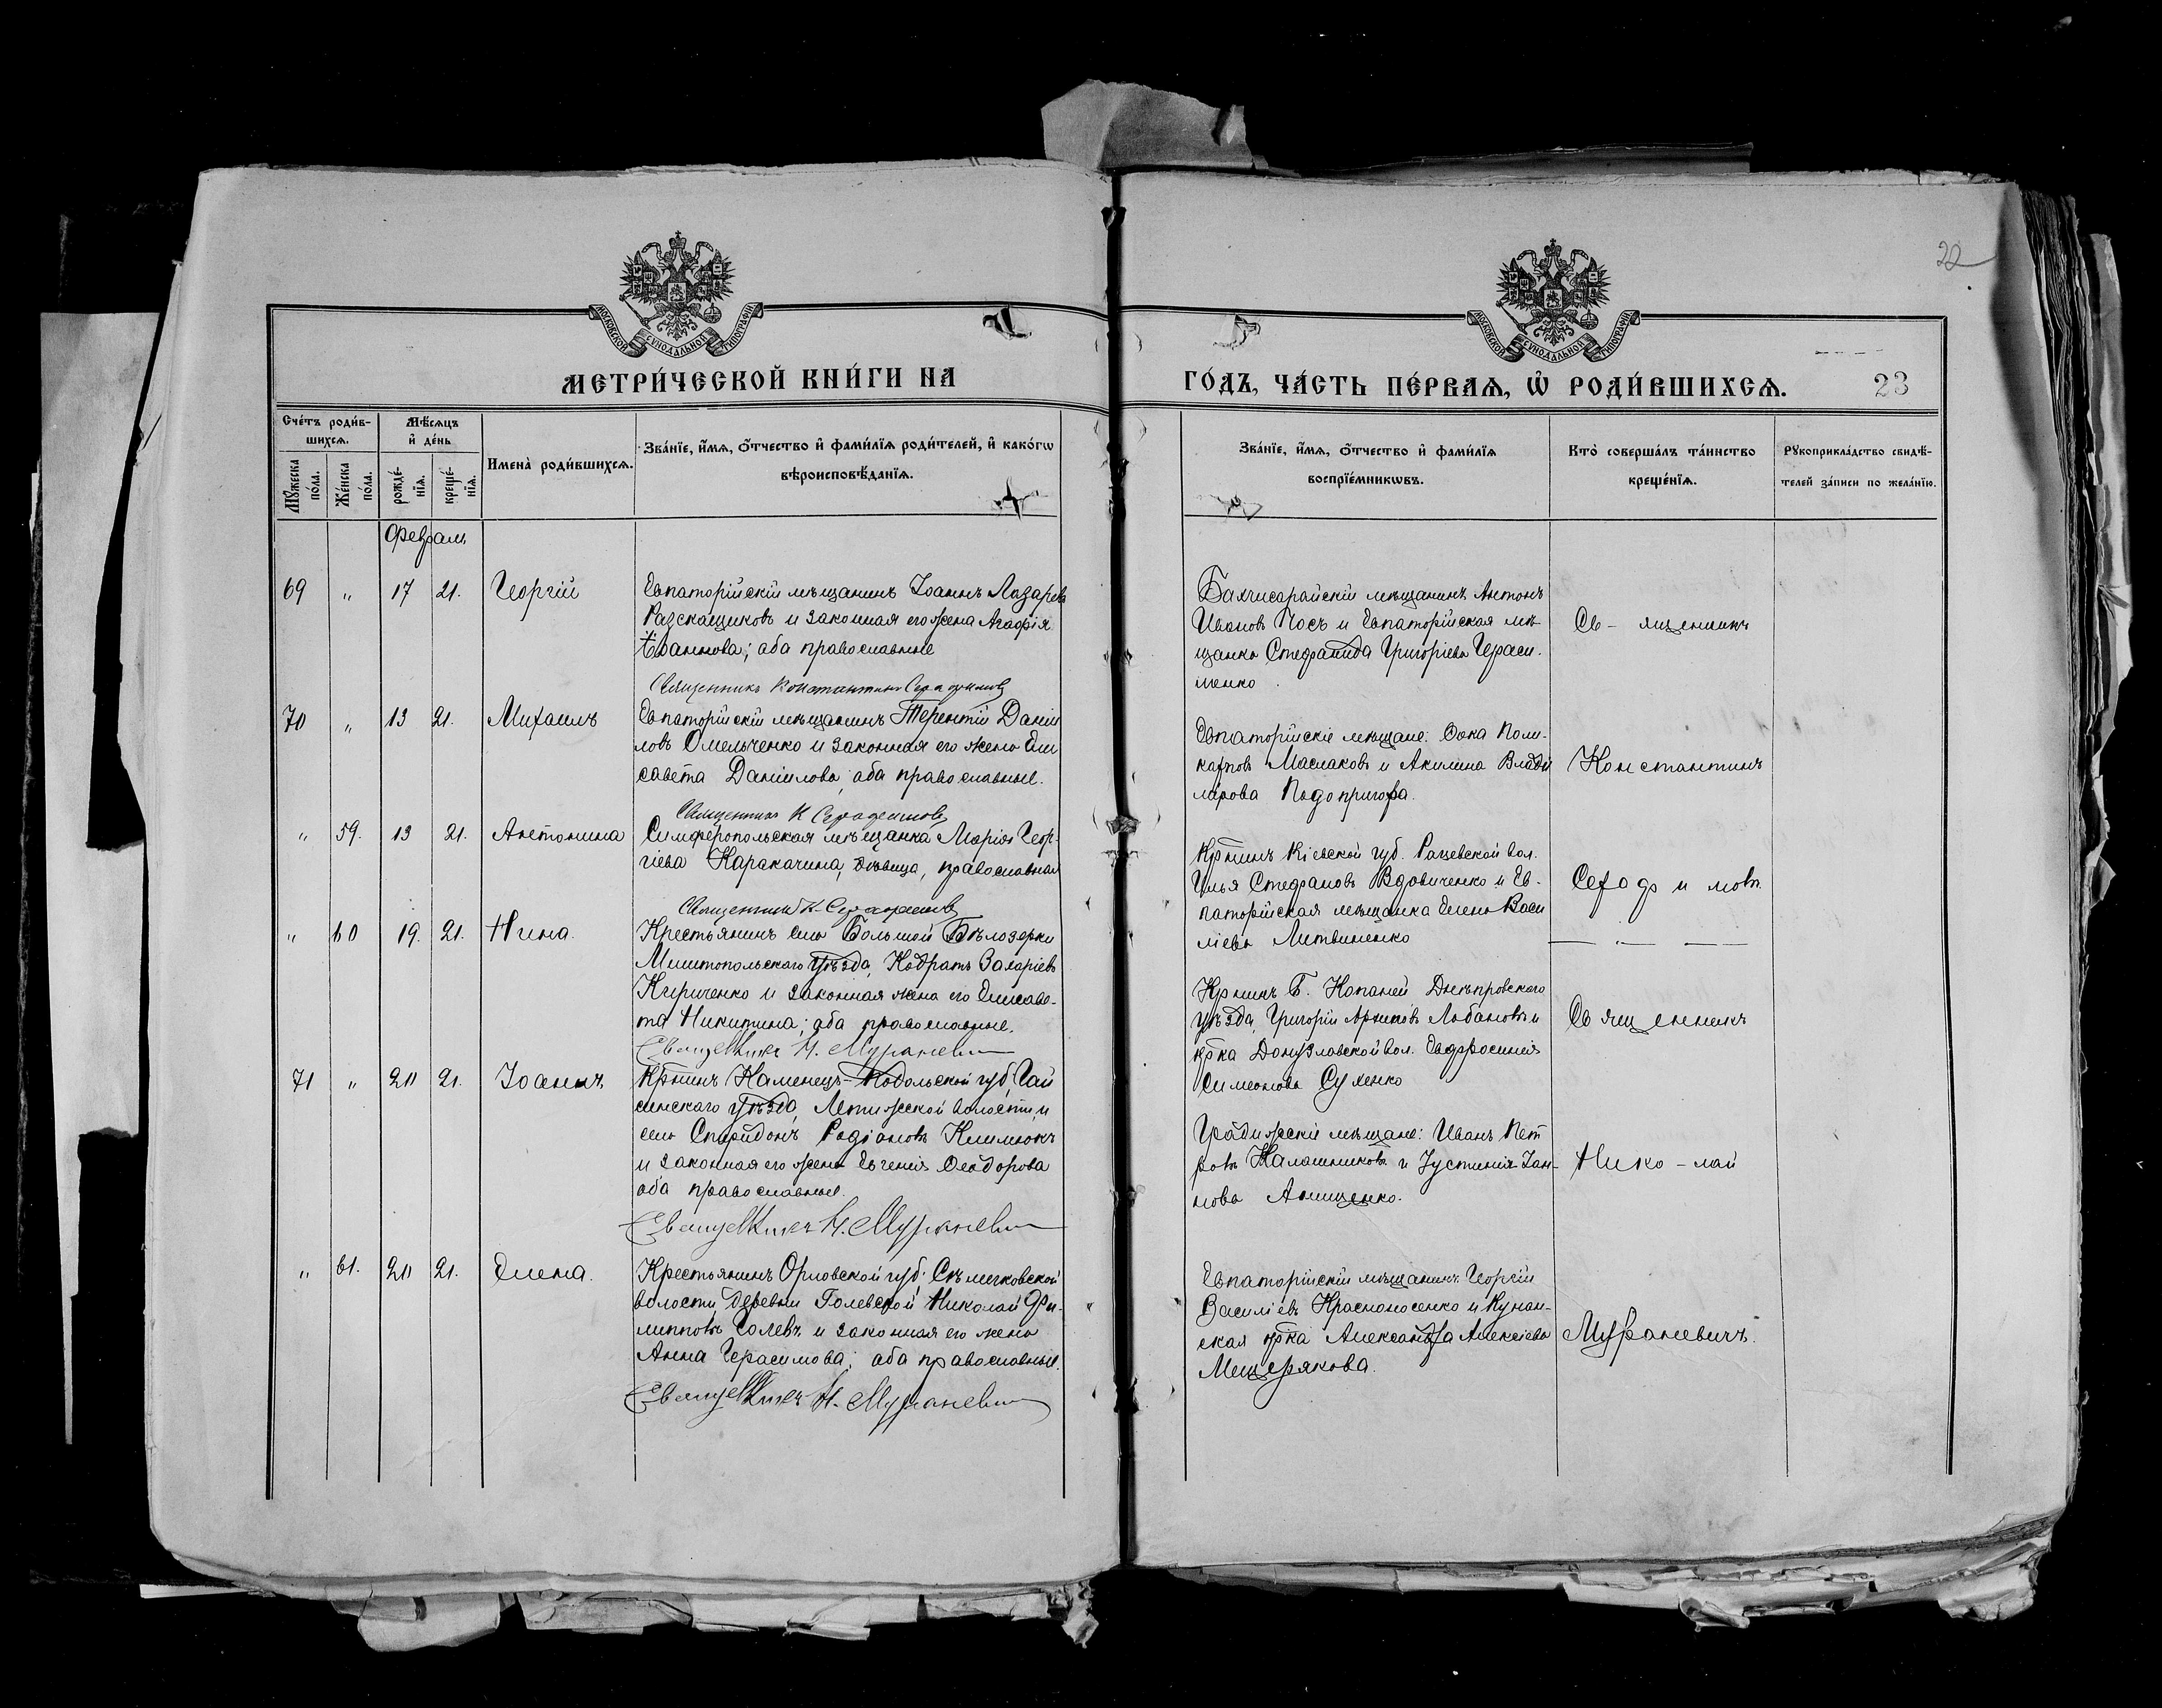 22
МОСКОВСКОЙ СУНОДАЛЬНОЙ ТИПОГРАФІИ
МОСКОВСКОЙ СУНОДАЛЬНОЙ ТИПОГРАФІИ
МЕТРИ́ЧЕСКОЙ КНИ́ГИ НА
ГО́ДЪ, ЧА́СТЬ ПЕ́РВАѦ, Ѽ РОДИ́ВШИХСѦ.
23
Сче́тъ роди́в-
шихсѧ.
Мѣ́сѧцъ
и҆ де́нь
Мꙋ́жеска
по́ла.
Же́нска
по́ла.
рожде́-
нїѧ.
креще́-
нїѧ.
Имена̀ роди́вшихсѧ.
Зва́нїе, и҆́мѧ, ѻ҆́тчество и҆ фами́лїѧ роди́телей, и҆ како́гѡ
вѣроисповѣ́данїѧ.
Зва́нїе, и҆́мѧ, ѻ҆́тчество и҆ фами́лїѧ
воспрїе́мникѡвъ.
Кто̀ соверша́лъ та́инство
креще́нїѧ.
Рꙋкоприкла́дство свидѣ́-
телей за́писи по жела́нїю.
Февраль
69 " 17 21. Георгій
Евпаторійскій мѣщанинъ Іоаннъ Лазаревъ
Разскащиковъ и законная его жена Агафія
Іоаннова; оба православные
Священникъ Константинъ Серафимовъ
Бахчисарайскій мѣщанинъ Антонъ
Ивановъ Носъ и Евпаторійская мѣ-
щанка Стефанида Григоріева Гераси-
менко
Св- ященникъ
70 " 13 21. Михаилъ
Евпаторійскій мѣщанинъ Терентій Даніи
ловъ Омельченко и законная его жена Ели
савета Даніилова; оба православные.
Священникъ К Серафимовъ
Евпаторійскіе мѣщане: Ѳока Поли-
карповъ Маслаковъ и Акилина Влади
мірова Подопригора.
Константинъ
" 59. 13 21. Антонина
Симферопольская мѣщанка Марія Геор-
гіева Каракачина, дѣвица, православная
Священникъ К. Серафимовъ
Крт̃нинъ Кіевской губ. Рацевской вол.
Илья Стефановъ Вдовиченко и Ев-
паторійская мѣщанка Елена Васи
ліева Литвиненко
Серафимовъ
" 60 19. 21. Нина.
Крестьянинъ села Большой Бѣлозерки
Мелитопольскаго уѣзда, Кодратъ Захаріевъ
Кириченко и законная жена его Елисаве-
та Никитина; оба православные.
Священникъ Н. Мураневичъ
Крт̃нинъ Б. Копаней Днѣпровскаго
уѣзда, Григорій Архиповъ Лобановъ и
крт̃ка Донузлавской вол. Евфросинія
Симеонова Сухенко
Священникъ
71 " 20 21. Іоаннъ
Крт̃нинъ Каменецъ-Подольской губ, Гай
синскаго уѣзда, волости, и
села Спиридонъ Родіоновъ Климнюкъ
и законная его жена Евгенія Ѳеодорова
оба православные.
Священникъ Н. Мураневичъ
Градижскіе мѣщане: Иванъ Пет
ровъ Калашниковъ и Іустинія Іоан-
нова Анищенко.
Нико-лай
" 61. 20 21. Елена.
Крестьянинъ Орловской губ. Сѣмичковской
волости, деревни Голевской Николай Фи-
липповъ Голевъ и законная его жена
Анна Герасимова; оба православные.
Священникъ Н. Мураневичъ
Евпаторійскій мѣщанинъ Георгій
Василіевъ Красноносенко и Кунан-
ская крт̃ка Александра Алексіева
Мещерякова.
Мураневичъ.